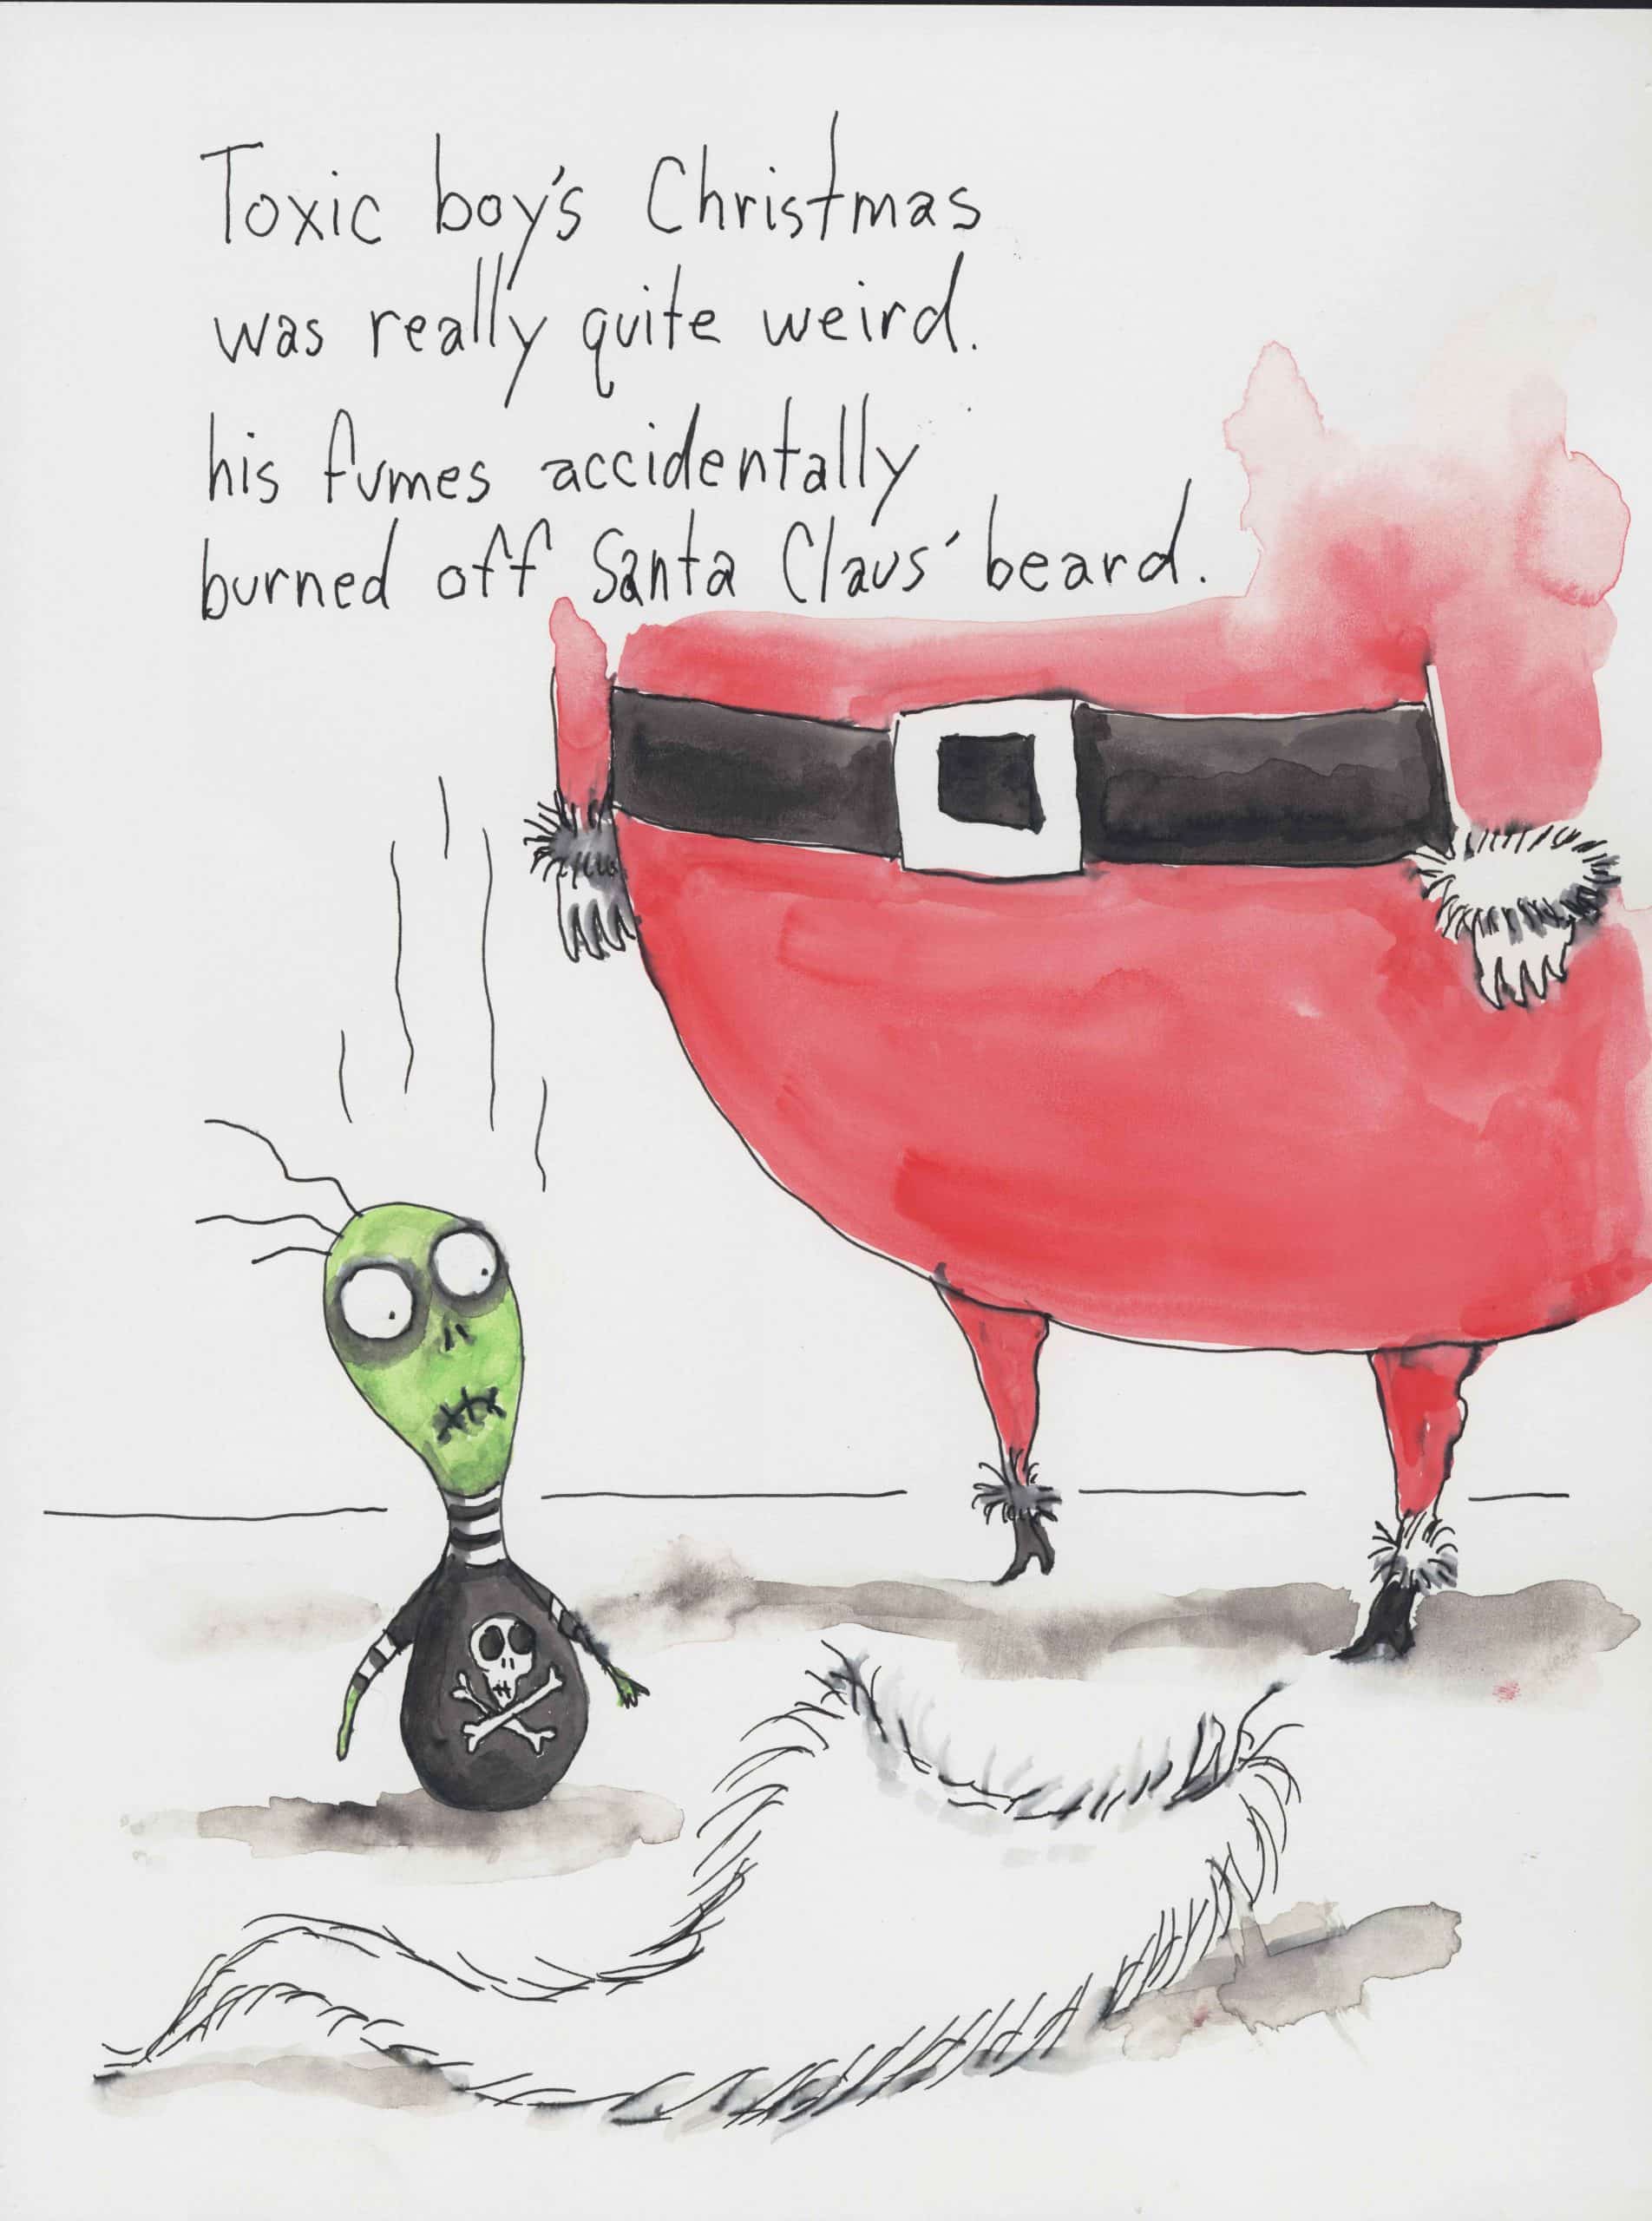 Toxic boy's Christmas
was really quite weird.
his fumes accidentally
burned off Santa Claus' beard.